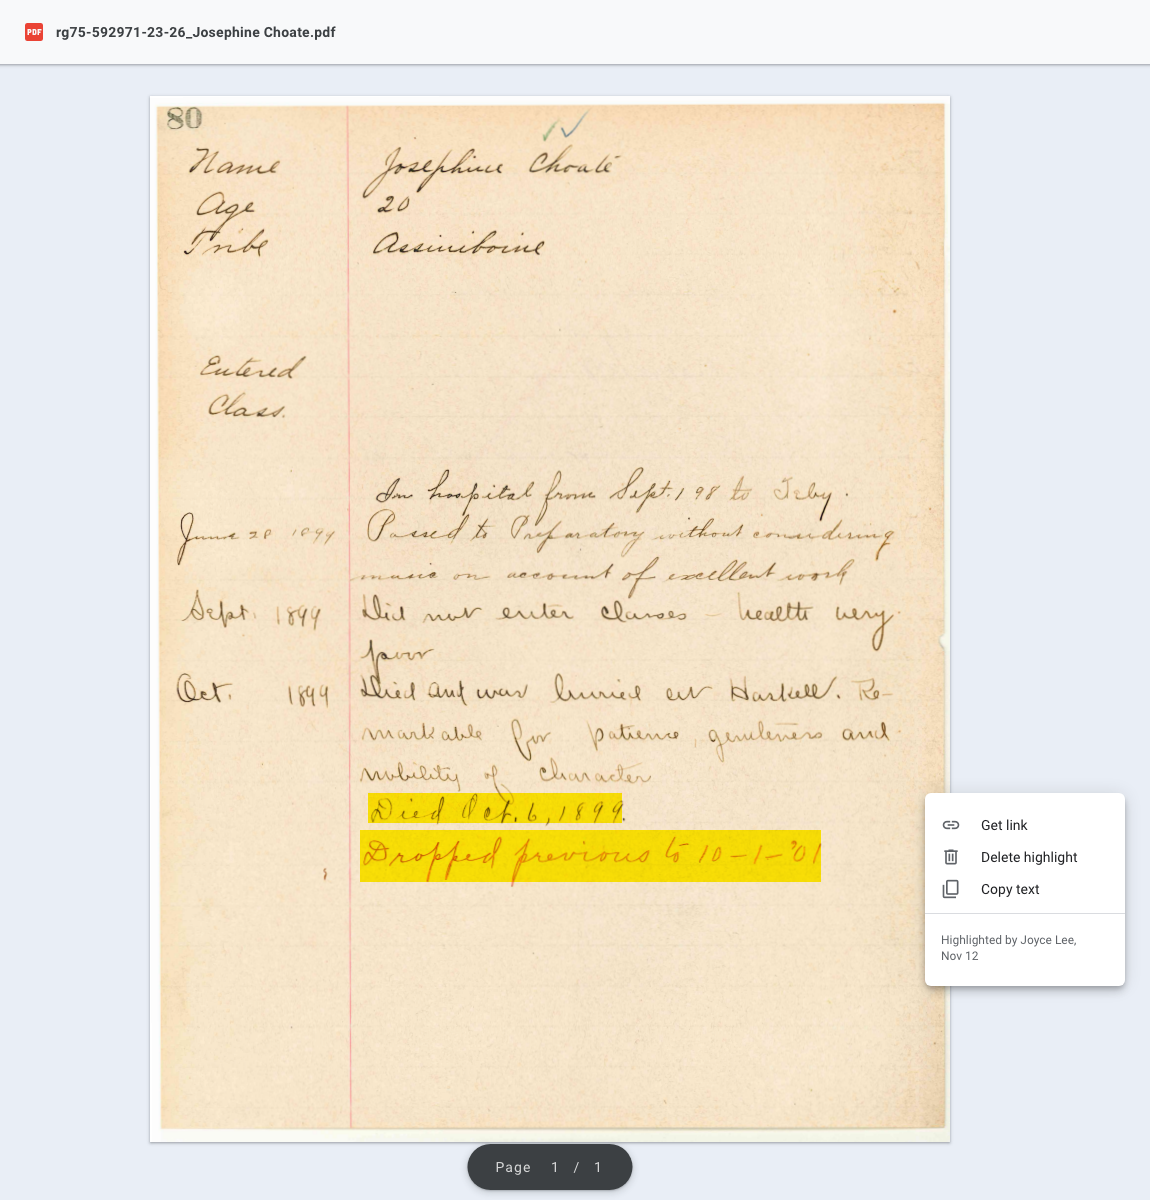 PDF rg75-592971-23-26_Josephine Choate.pdf
80
Name Josephine Choate
Age 20
Tribe Assiniboine
Entered
Class.
In hospital from Sept. 1 98 to Feby.
June 20 1899 Passed to Preparatory without considering
music on account of excellent work
Sept. 1899 Did not enter classes – health very
poor
Oct. 1899 Died and was buried at Haskell. Re-
markable for patience, gentleness and
nobility of character
Died Oct. 6, 1899.
Dropped previous to 10-1-'01
Get link
Delete highlight
Copy text
Highlighted by Joyce Lee,
Nov 12
Page 1 / 1